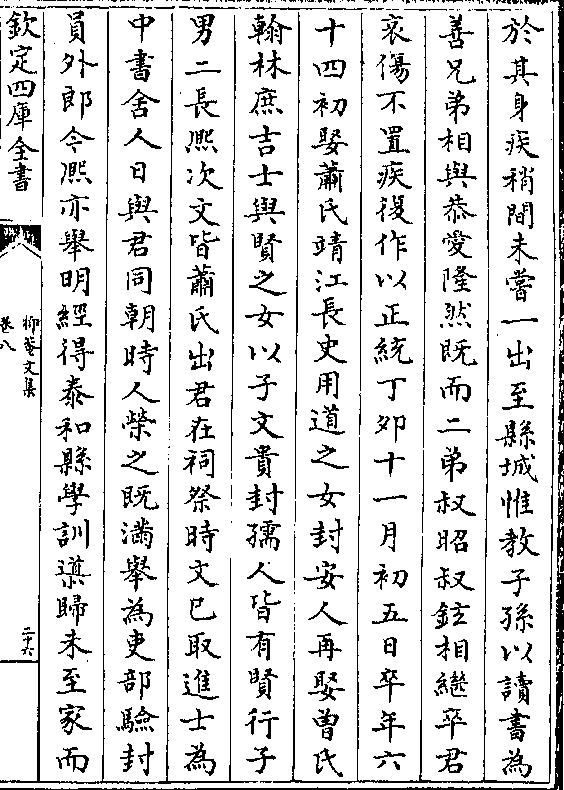 於其身疾稍間未嘗一出至縣城惟教子孫以讀書為
善兄弟相與恭愛隆然既而二弟叔昭叔鉉相繼卒君
哀傷不置疾復作以正統丁夘十一月初五日卒年六
十四初娶蕭氏靖江長史用道之女封安人再娶曾氏
翰林庶吉士與賢之女以子文貴封孺人皆有賢行子
男二長熈次文皆蕭氏出君在祠祭時文已取進士為
中書舍人日與君同朝時人榮之既滿舉為吏部驗封
員外郎今熈亦舉明經得泰和縣學訓導歸未至家而
欽定四庫全書
抑菴文集
卷八
二十六